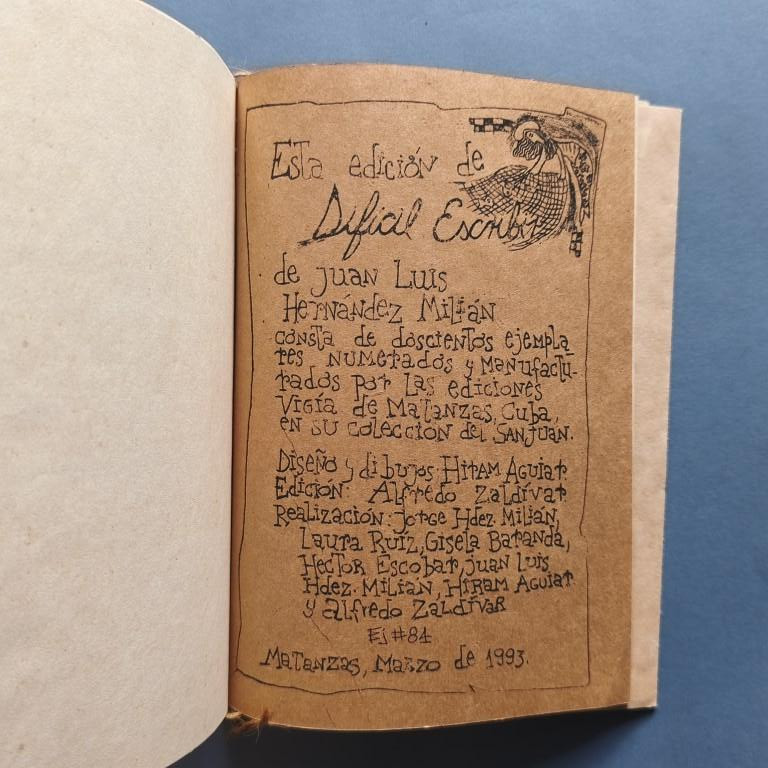 Esta edición de
Dificil Escribir
de Juan Luis
Hernández Milián
consta de doscientos ejempla_
res numerados y manufactu-
rados por las ediciones
Vigía de Matanzas, Cuba,
en su colección del SanJuan.
Diseño y dibujos: Hiram Aguiar
Edición: Alfredo Zaldívar
Realización: Jorge Hdez. Milián,
Laura Ruíz, Gisela Baranda,
Hector Escobar, Juan Luis
Hdez. Milián, Hiram Aguiar
y Alfredo Zaldívar
Ej #84
Matanzas, Marzo de 1993.